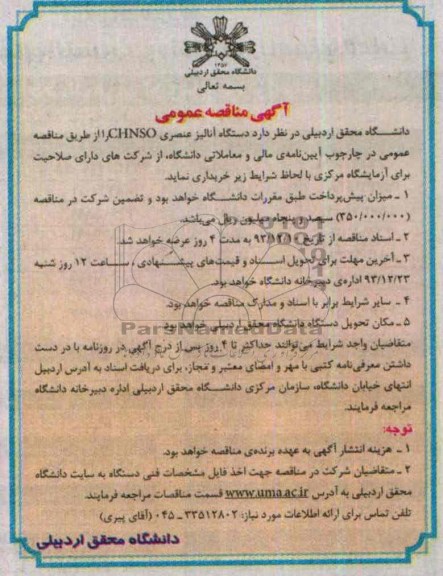 ۱۳۵۷
دانشگاه محقق اردبیلی
بسمه تعالی
آگهی مناقصه عمومی
دانشگاه محقق اردبیلی در نظر دارد دستگاه آنالیز عنصری CHNSO را از طریق مناقصه
عمومی در چارچوب آیین‌نامه‌ی مالی و معاملاتی دانشگاه، از شرکت های دارای صلاحیت
برای آزمایشگاه مرکزی با لحاظ شرایط زیر خریداری نماید.
۱ ـ میزان پیش‌پرداخت طبق مقررات دانشگاه خواهد بود و تضمین شرکت در مناقصه
(۳۵۰/۰۰۰/۰۰۰) سیصد و پنجاه میلیون ریال می‌باشد.
۲ ـ اسناد مناقصه از تاریخ به مدت ۴ روز عرضه خواهد شد.
۳ ـ آخرین مهلت برای تحویل اسناد و قیمت‌های پیشنهادی، ساعت ۱۲ روز شنبه
۹۳/۱۲/۲۳ اداره‌ی دبیرخانه دانشگاه خواهد بود.
۴ ـ سایر شرایط برابر با اسناد و مدارک مناقصه خواهد بود.
ParsNamadData
۵ ـ مکان تحویل دستگاه دانشگاه محقق اردبیلی خواهد بود.
متقاضیان واجد شرایط می‌توانند حداکثر تا ۴ روز پس از درج آگهی در روزنامه با در دست
داشتن معرفی‌نامه کتبی با مهر و امضای معتبر و مجاز، برای دریافت اسناد به آدرس اردبیل
انتهای خیابان دانشگاه، سازمان مرکزی دانشگاه محقق اردبیلی اداره دبیرخانه دانشگاه
مراجعه فرمایند.
توجه:
۱ ـ هزینه انتشار آگهی به عهده برنده‌ی مناقصه خواهد بود.
۲ ـ متقاضیان شرکت در مناقصه جهت اخذ فایل مشخصات فنی دستگاه به سایت دانشگاه
محقق اردبیلی به آدرس www.uma.ac.ir قسمت مناقصات مراجعه فرمایند.
تلفن تماس برای ارائه اطلاعات مورد نیاز: ۳۳۵۱۲۸۰۲ ـ ۰۴۵ (آقای پیری)
دانشگاه محقق اردبیلی